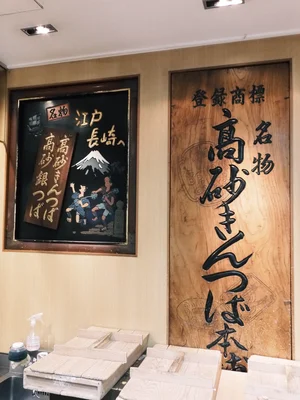 名物
江戸
長崎へ
高砂きんつば
高砂銀つば
登録商標
名物
高砂きんつば本